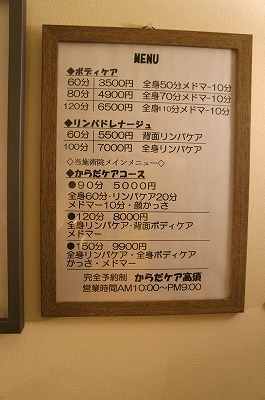 MENU
◆ボディケア
60分 3500円 全身50分メドマー10分
80分 4900円 全身70分メドマー10分
120分 6500円 全身110分メドマー10分
◆リンパドレナージュ
60分 5500円 背面リンパケア
100分 7000円 全身リンパケア
◇当施術院メインメニュー◇
◆からだケアコース
●90分 5000円
全身60分・リンパケア20分
メドマー10分・顔かっさ
●120分 8000円
全身リンパケア・背面ボディケア
メドマー
●150分 9900円
全身リンパケア・全身ボディケア
かっさ・メドマー
完全予約制 からだケア高須
営業時間AM10:00〜PM9:00